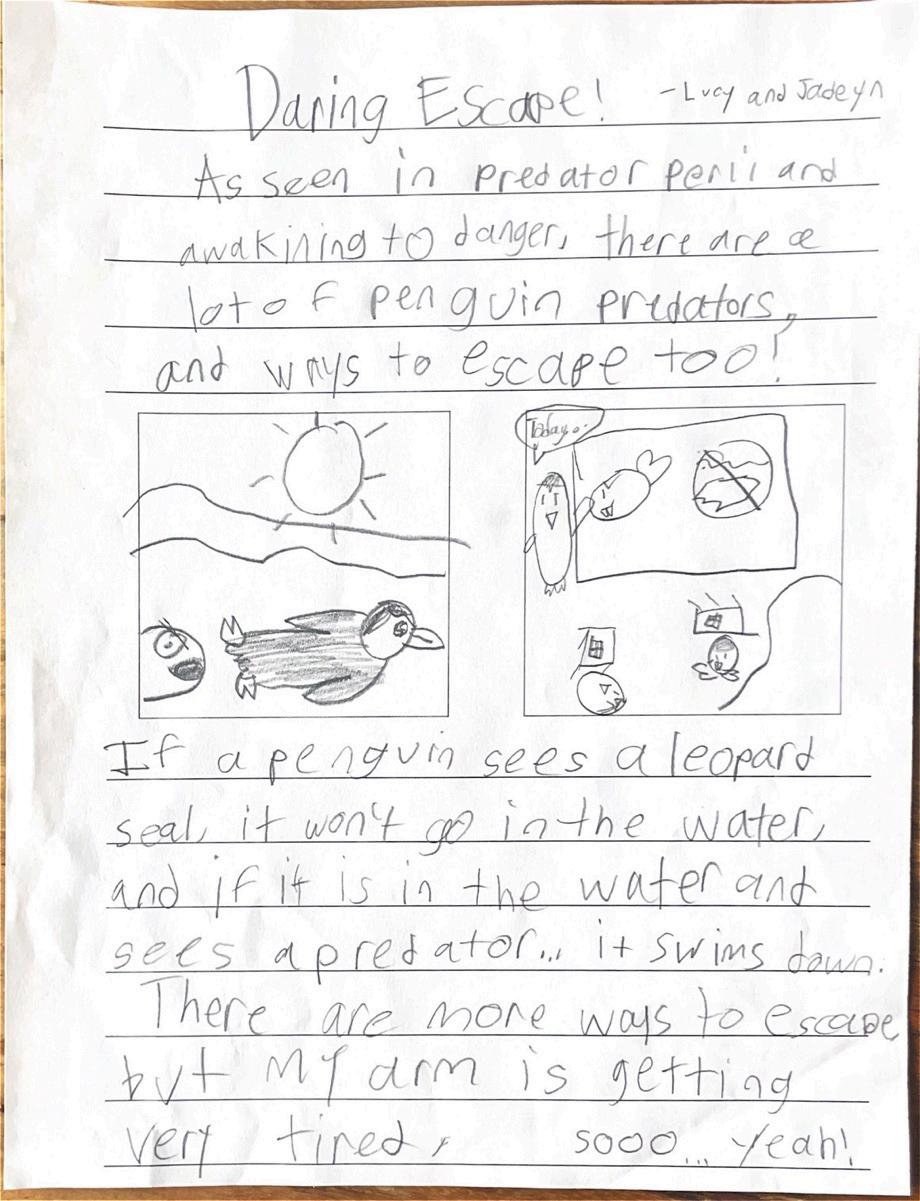 Daring Escape! -Lucy and Jadeyn
As seen in predator peril and
awakining to danger, there are a
lot of penguin predators,
and ways to escape too!
Today...
If a penguin sees a leopard
seal, it won't go in the water,
and if it is in the water and
sees a predator... it swims down.
There are more ways to escape
but my arm is getting
very tired, sooo... yeah!